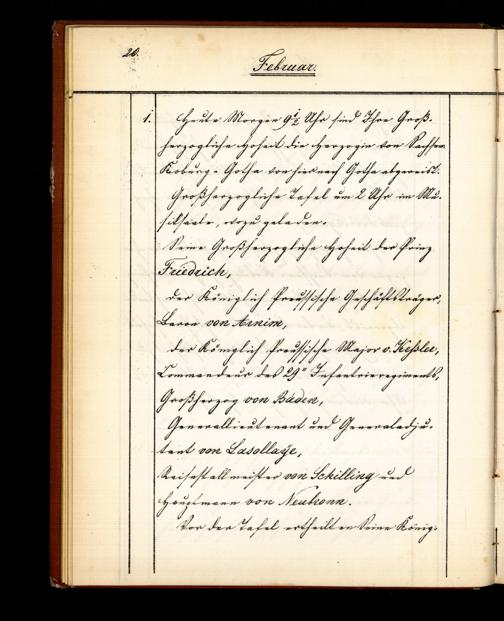 20.
Februar.
1. Heute Morgen 9½ Uhr sind Ihre Groß-
herzogliche Hoheit die Herzogin von Sachsen
Koburg-Gotha von hier nach Gotha abgereist.
Großherzogliche Tafel um 2 Uhr im Mu-
siksaale, dazu geladen.
Seine Großherzogliche Hoheit der Prinz
Friedrich,
der Königlich Preußische Geschäftsträger,
Baron von Arnim,
der Königlich Preußische Major v. Keßler,
Commandeur des 29n Infanterieregiments,
Großherzog von Baden,
Generallieutenant und Generaladju-
tant von Lasollaye,
Reisestallmeister von Schilling und
Hauptmann von Neubronn.
Vor der Tafel ertheilten Seine König-